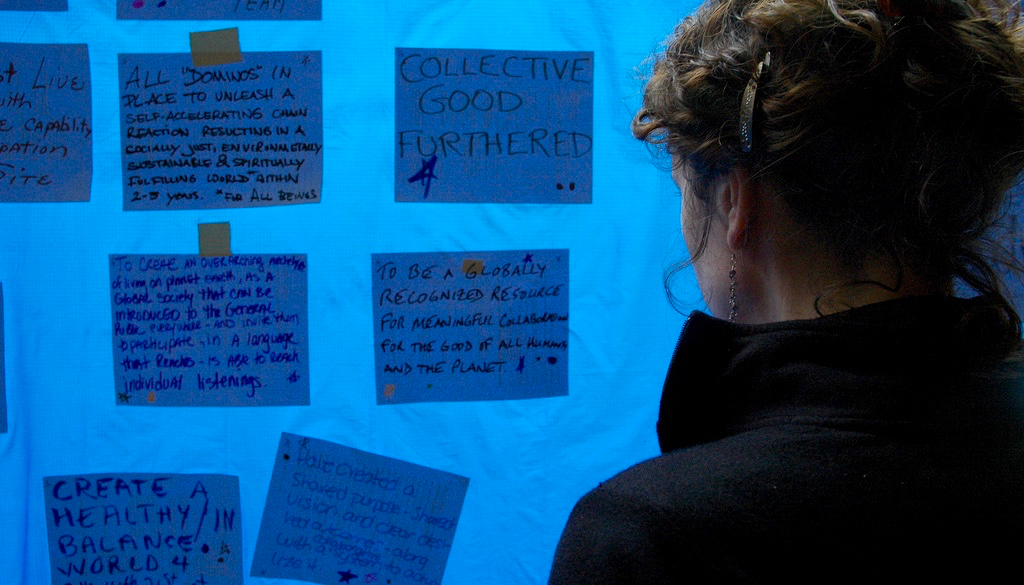 TEAM
LIVE
with
CAPABILITY
ALL "DOMINOS" IN
PLACE TO UNLEASH A
SELF-ACCELERATING CHAIN
REACTION RESULTING IN A
SOCIALLY JUST, ENVIRONMETALLY
SUSTAINABLE & SPIRITUALLY
FULFILLING WORLD* WITHIN
2-5 YEARS. *FOR ALL BEINGS
COLLECTIVE
GOOD
FURTHERED
TO CREATE AN OVERARCHING
of living on planet EARTH, AS A
Global Society that can BE
INTRODUCED to the GENERAL
Public everywhere - AND invite them
to participate, in A language
that REACHES - is ABLE to REACH
individual listenings.
TO BE A GLOBALLY
RECOGNIZED RESOURCE
FOR MEANINGFUL COLLABORATION
FOR THE GOOD OF ALL HUMANS
AND THE PLANET.
CREATE A
HEALTHY/IN
BALANCE
WORLD 4
Have created a
Shared purpose, shared
vision, and clear
along
with a to